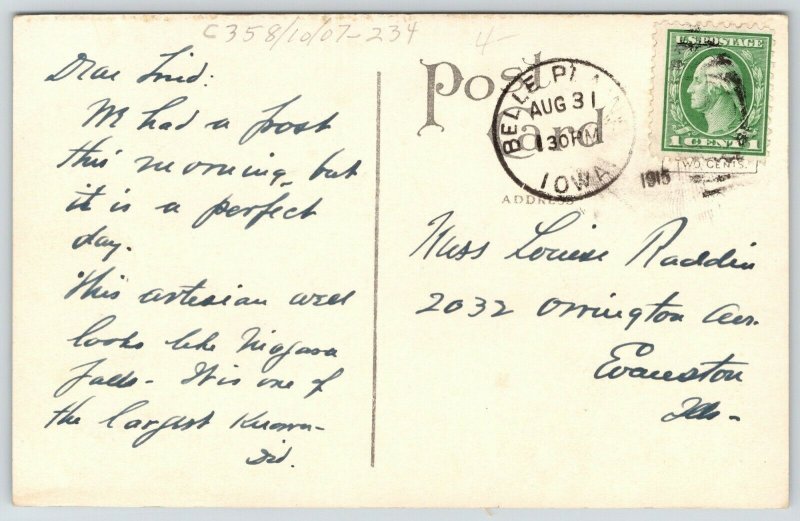 C358/10/07-234
4-
Dear
We had a frost
this morning, but
it is a perfect
day.
This artesian well
looks like Niagara
Falls - It is one of
the largest known -
Sid.
Post
Card
ADDRESS
BELLE PLAINE
AUG 31
130 PM
IOWA
1915
U.S. POSTAGE
1 CENT 1
TWO CENTS.
Miss Louise Raddin
2032 Orrington Ave.
Evanston
Ills -